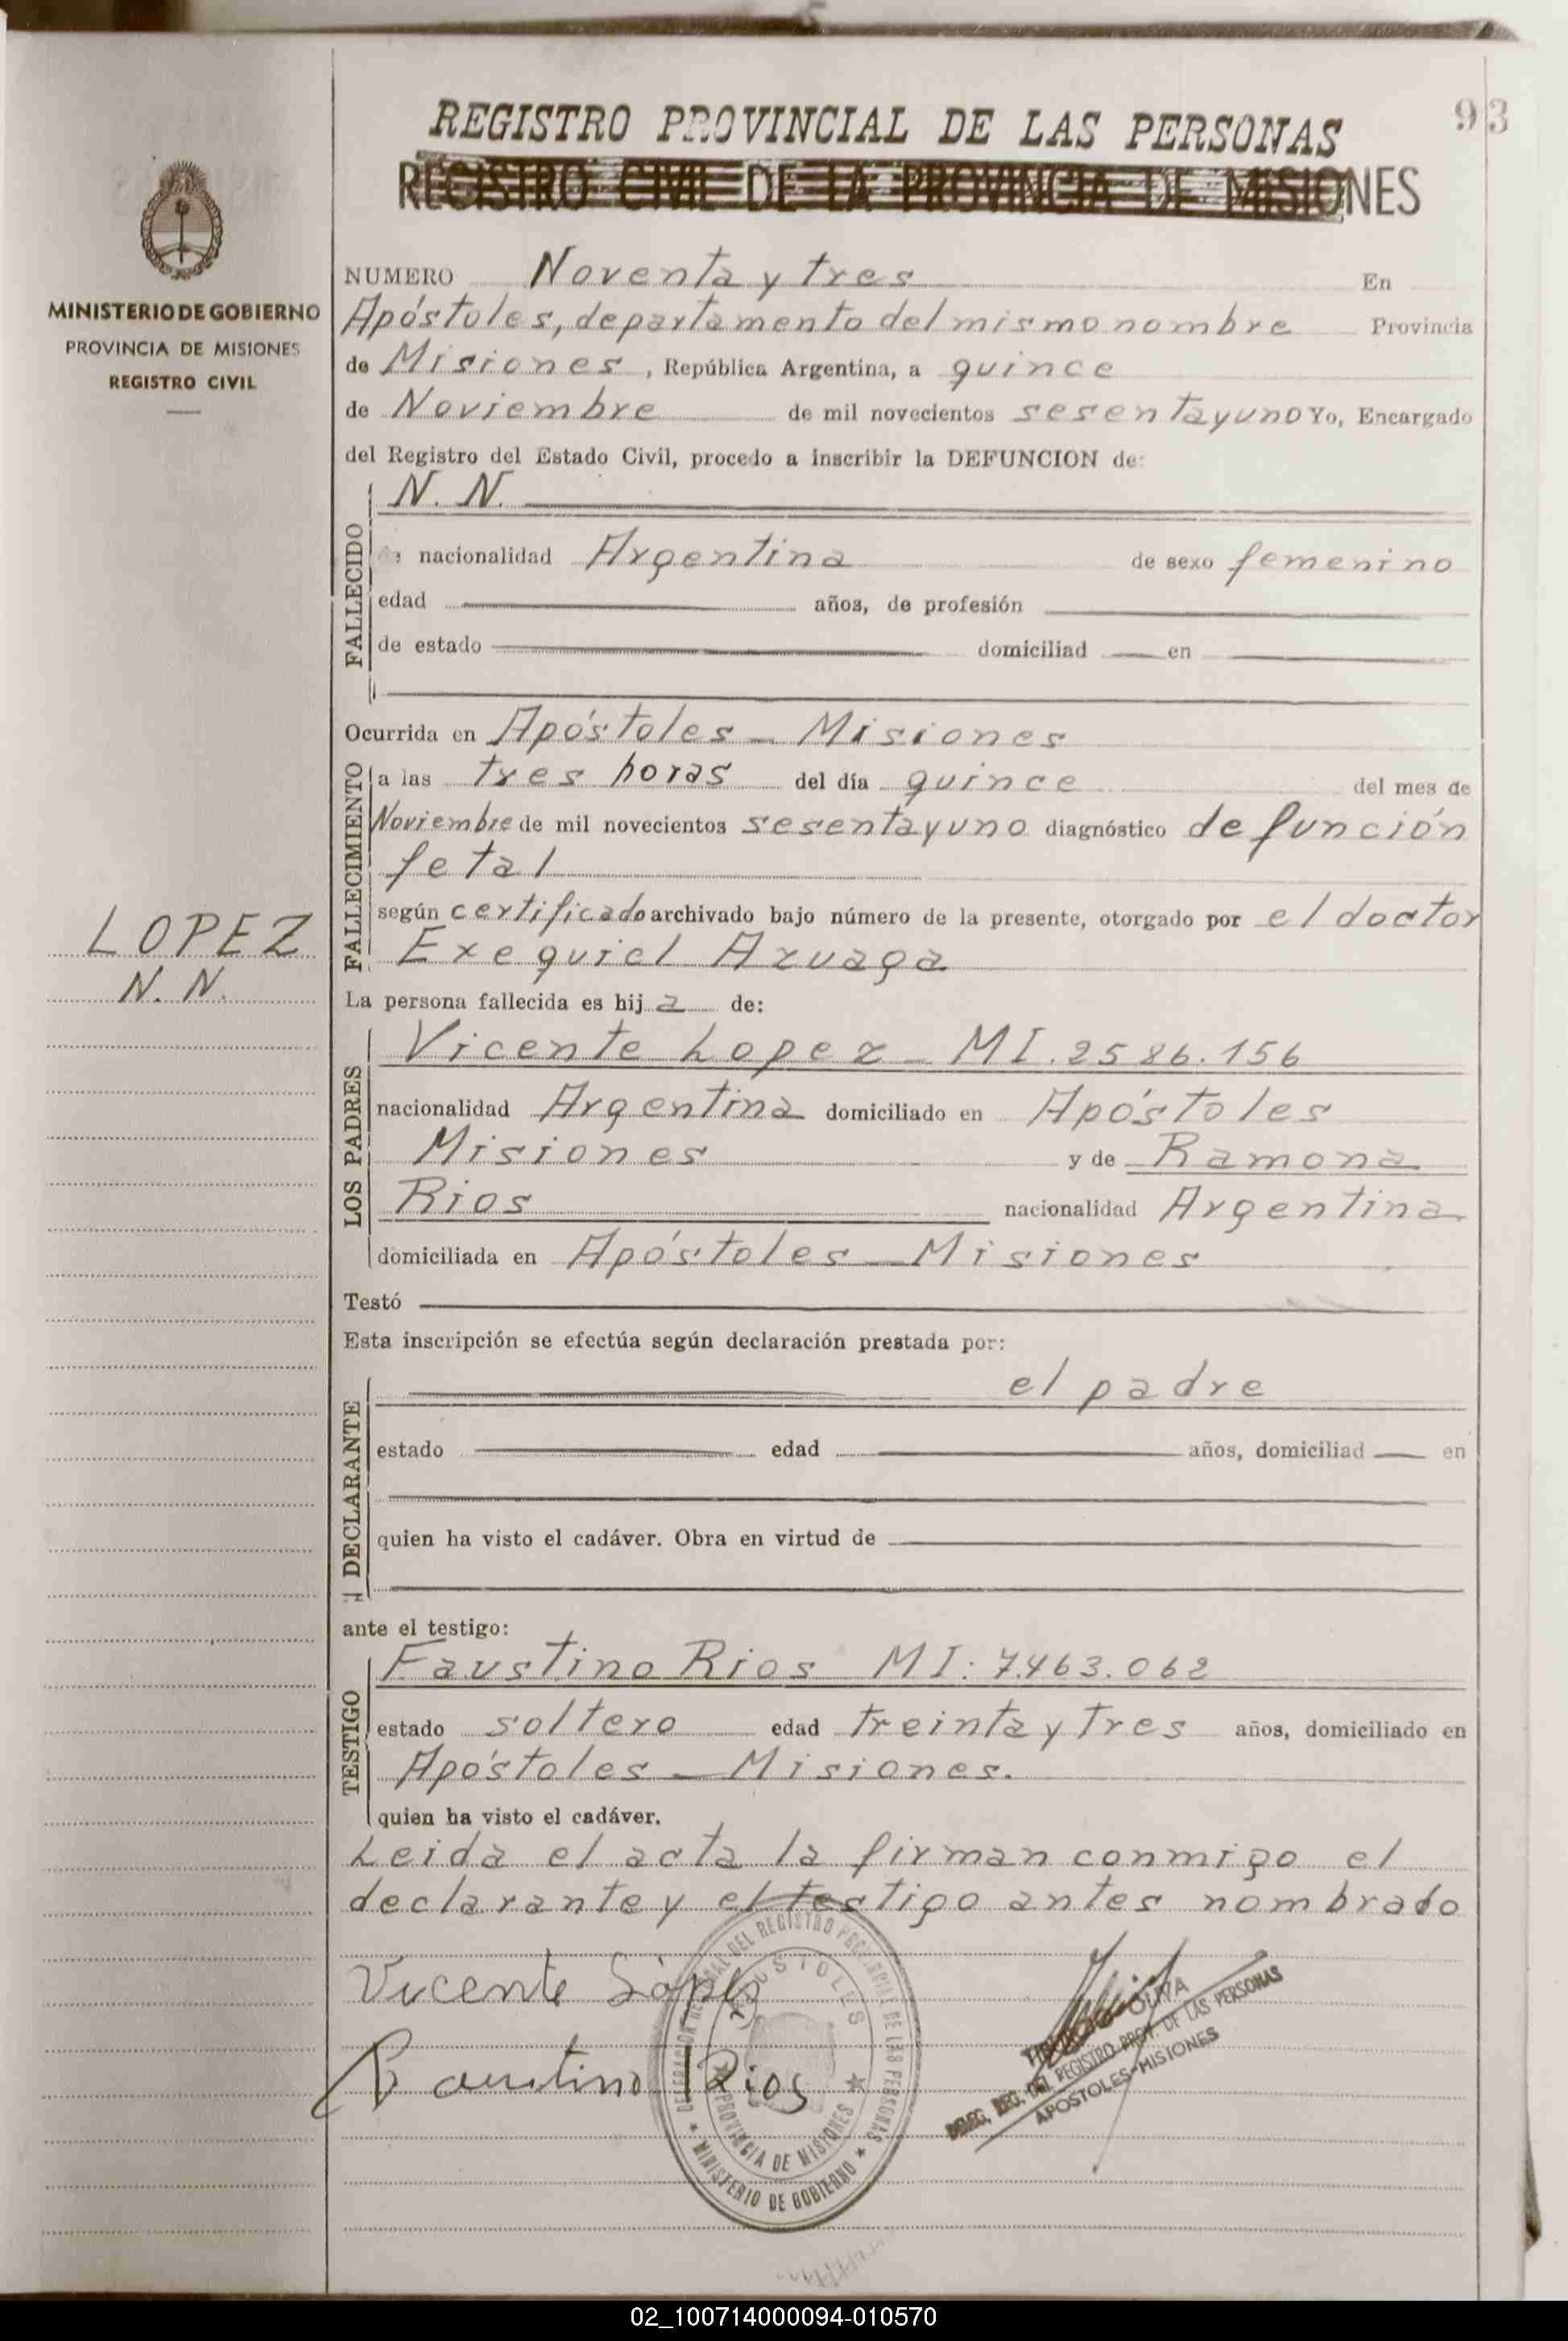 93
REGISTRO PROVINCIAL DE LAS PERSONAS
REGISTRO CIVIL DE LA PROVINCIA DE MISIONES
MINISTERIO DE GOBIERNO
PROVINCIA DE MISIONES
REGISTRO CIVIL
NUMERO Noventa y tres En
Apóstoles, departamento del mismo nombre Provincia
de Misiones, República Argentina, a quince
de Noviembre de mil novecientos sesentayuno Yo, Encargado
del Registro del Estado Civil, procedo a inscribir la DEFUNCION de:
FALLECIDO
N. N.
de nacionalidad Argentina de sexo femenino
edad años, de profesión
de estado domiciliad en
Ocurrida en Apóstoles - Misiones
FALLECIMIENTO
a las tres horas del día quince del mes de
Noviembre de mil novecientos sesentayuno diagnóstico defunción
fetal
según certificado archivado bajo número de la presente, otorgado por el doctor
Exequiel Azuaga
LOPEZ
N. N.
La persona fallecida es hija de:
LOS PADRES
Vicente Lopez - MI. 2586.156
nacionalidad Argentina domiciliado en Apóstoles
Misiones y de Ramona
Rios nacionalidad Argentina
domiciliada en Apóstoles - Misiones
Testó
Esta inscripción se efectúa según declaración prestada por:
DECLARANTE
el padre
estado edad años, domiciliad en
quien ha visto el cadáver. Obra en virtud de
ante el testigo:
TESTIGO
Faustino Rios MI: 7.463.062
estado soltero edad treinta y tres años, domiciliado en
Apóstoles - Misiones.
quien ha visto el cadáver.
Leida el acta la firman conmigo el
declarante y el testigo antes nombrado
Vicente López
Faustino Rios
REGISTRO PROVINCIAL DE LAS PERSONAS
APOSTOLES
PROVINCIA DE MISIONES
MINISTERIO DE GOBIERNO
OLIVA
DEL REGISTRO PROV. DE LAS PERSONAS
APOSTOLES-MISIONES
02_100714000094-010570